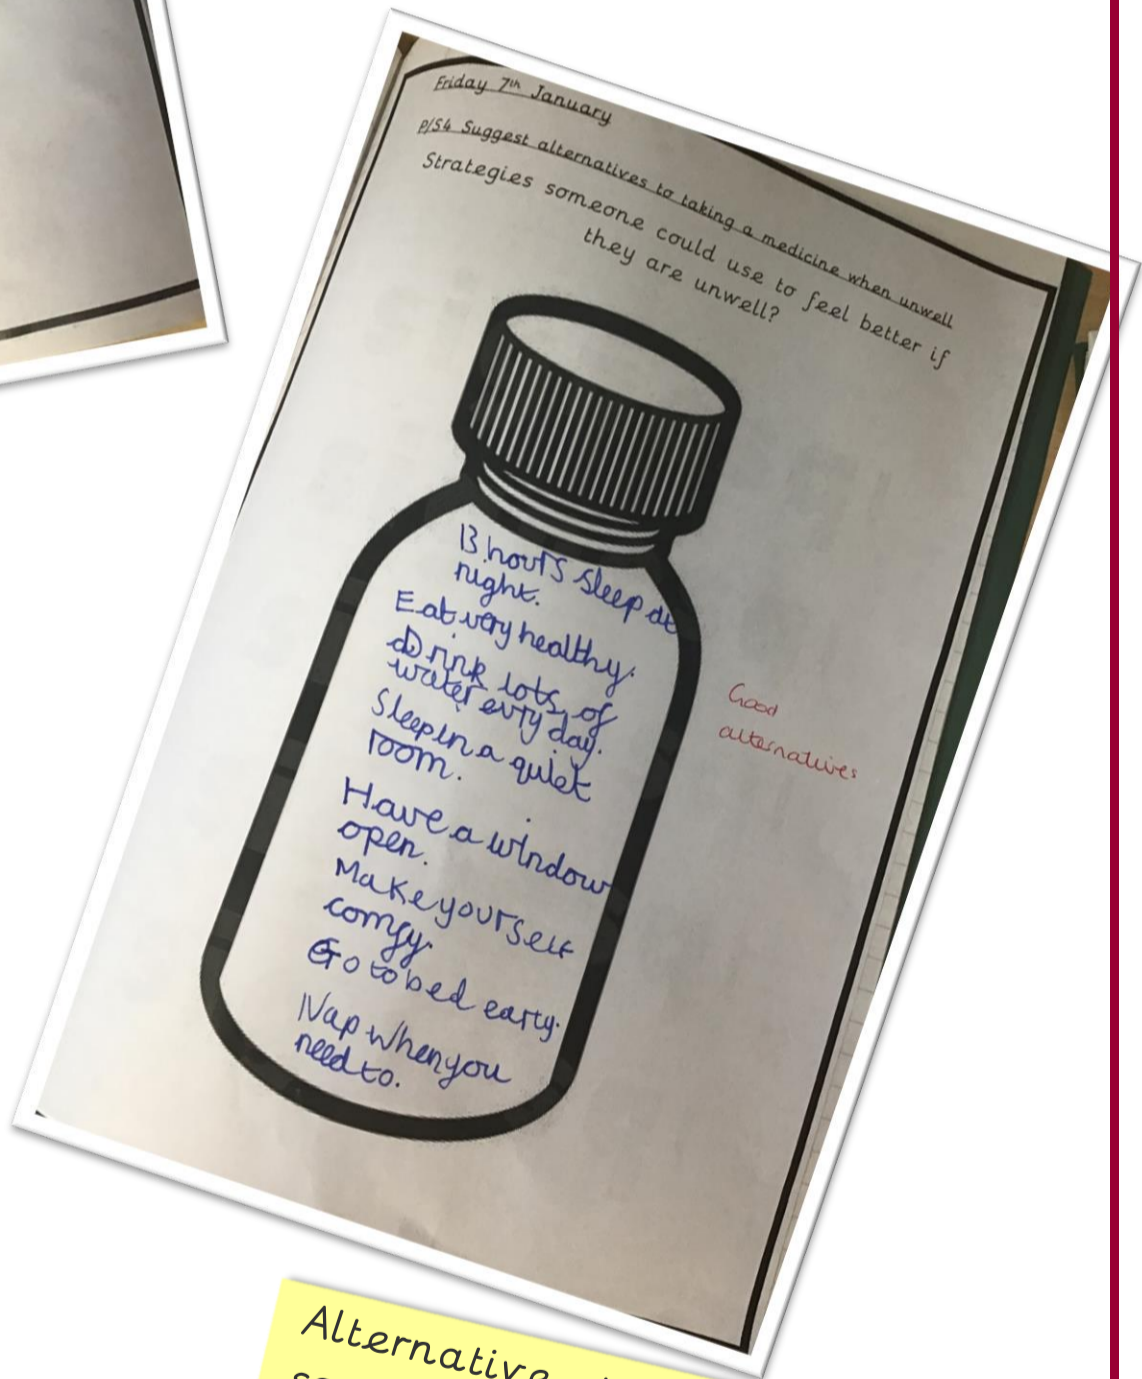 Friday 7th January
P/S4 Suggest alternatives to taking a medicine when unwell
Strategies someone could use to feel better if
they are unwell?
13 hours sleep at
night.
Eat very healthy.
Drink lots of
water evry day.
Sleep in a quiet
room.
Have a window
open.
Make yourself
comfy.
Go to bed early.
Nap when you
need to.
Good
alternatives
Alternative